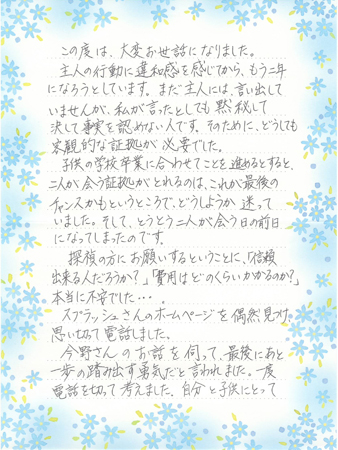 この度は、大変お世話になりました。
主人の行動に違和感を感じてから、もう二年
になろうとしています。まだ主人には、言い出して
いませんが、私が言ったとしても黙秘して
決して事実を認めない人です。そのために、どうしても
客観的な証拠が必要でした。
子供の学校卒業に合わせてことを進めるとすると、
二人が会う証拠がとれるのは、これが最後の
チャンスかもというところで、どうしようか迷って
いました。そして、とうとう二人が会う日の前日
になってしまったのです。
探偵の方にお願いするということに、「信頼
出来る人だろうか？」「費用はどのくらいかかるのか？」
本当に不安でした・・・。
スプラッシュさんのホームページを偶然見つけ
思い切って電話しました。
今野さんのお話を伺って、最後にあと
一歩の踏み出す勇気だと言われました。一度
電話を切って考えました。自分と子供にとって